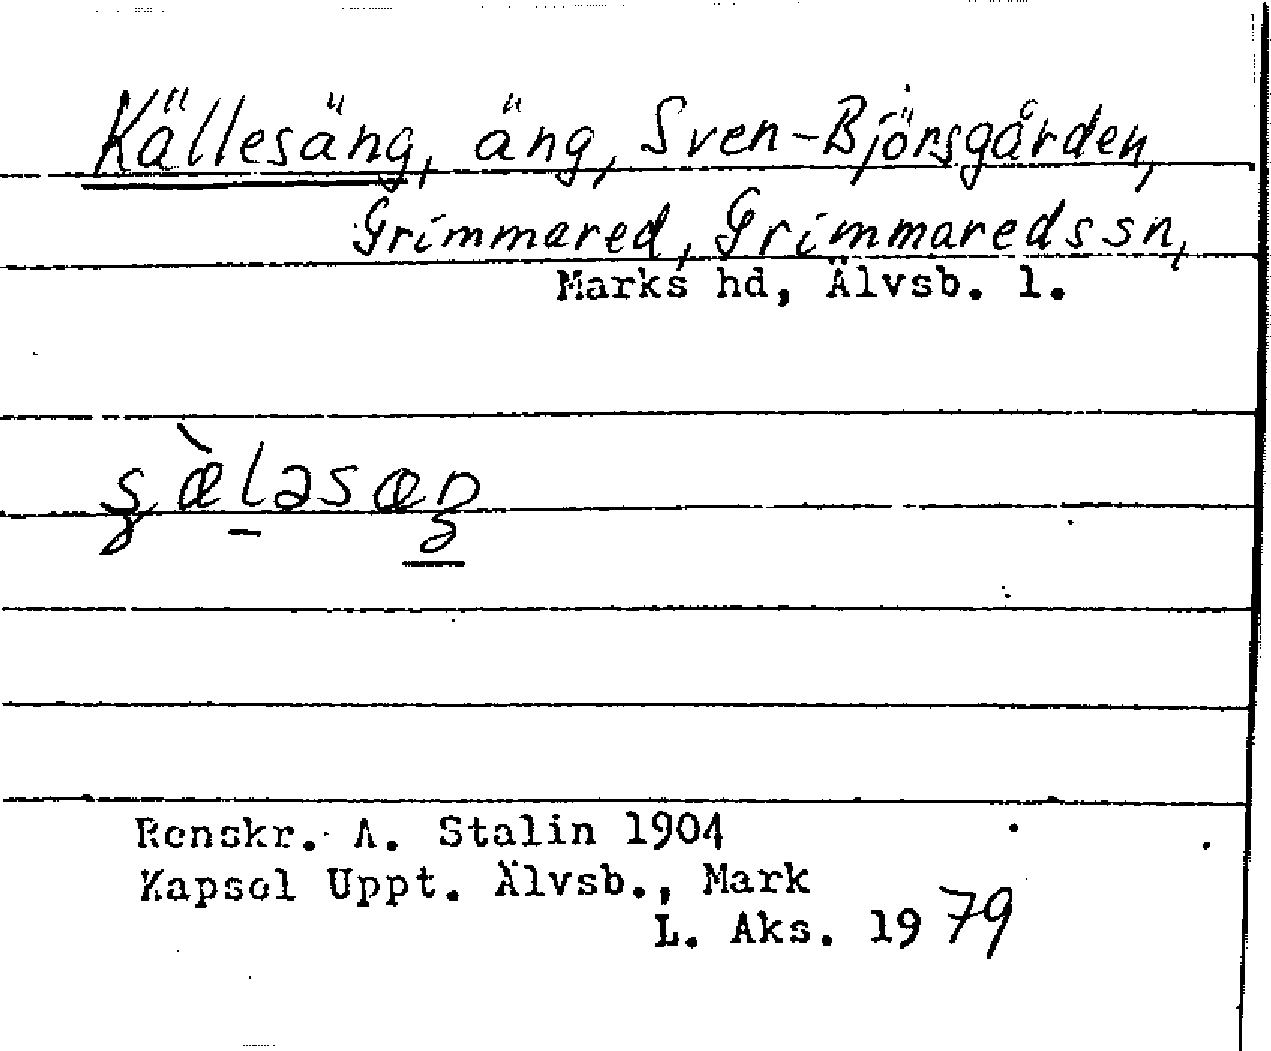 Källesäng, äng, Sven-Björsgården,
Grimmared, Grimmareds sn,
Marks hd, Älvsb. l.
Renskr. A. Stalin 1904
Kapsel Uppt. Älvsb., Mark
L. Aks. 1979